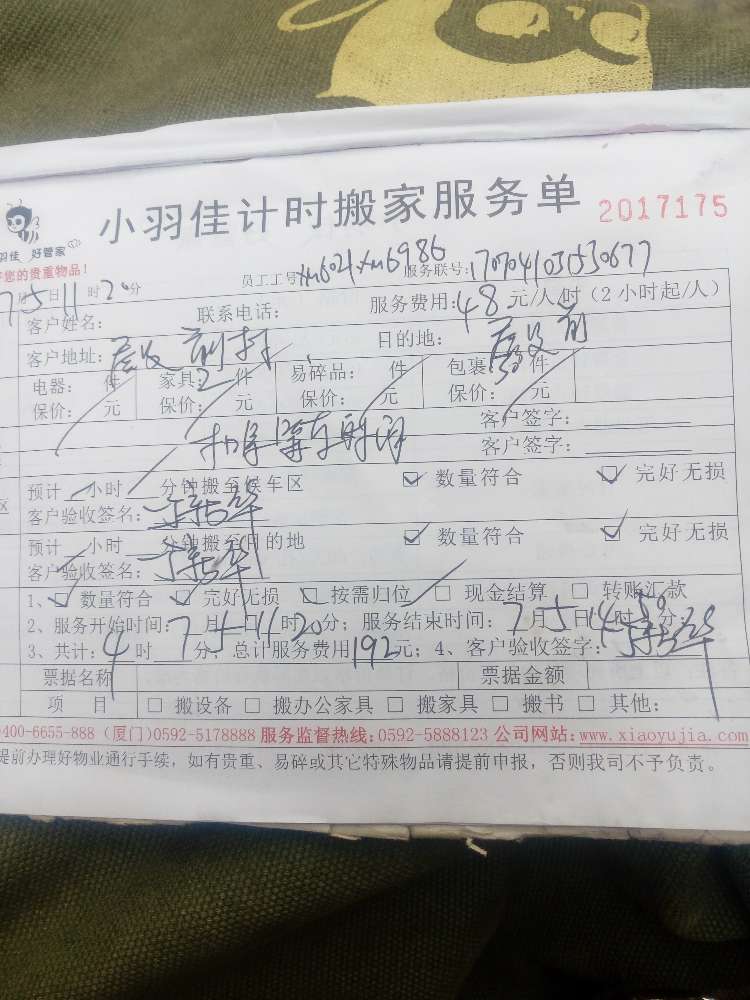 小羽佳计时搬家服务单 2017175
羽佳 好管家
您的贵重物品!
员工工号xm6021.xm6986 服务联号:1707041031530677
7月5日11时20分
客户姓名: 联系电话: 服务费用:48元/人/时(2小时起/人)
客户地址: 前村 目的地: 前
电器: 件 家具:2件 易碎品: 件 包裹: 件
保价: 元 保价: 元 保价: 元 保价: 元
客户签字:
客户签字:
预计 小时 分钟搬至候车区 ☑ 数量符合 ☑ 完好无损
区 客户验收签名:
预计 小时 分钟搬至目的地 ☑ 数量符合 ☑ 完好无损
客户验收签名:
1、☑ 数量符合 ☑ 完好无损 按需归位 现金结算 □ 转账汇款
2、服务开始时间:7月5日11时20分;服务结束时间:7月5日14时50分;
3、共计:4时 分,总计服务费用192元;4、客户验收签字:
票据名称 票据金额
项 目 □ 搬设备 □ 搬办公家具 □ 搬家具 □ 搬书 □ 其他:
400-6655-888 (厦门)0592-5178888 服务监督热线:0592-5888123 公司网站:www.xiaoyujia.com
提前办理好物业通行手续,如有贵重、易碎或其它特殊物品请提前申报,否则我司不予负责。